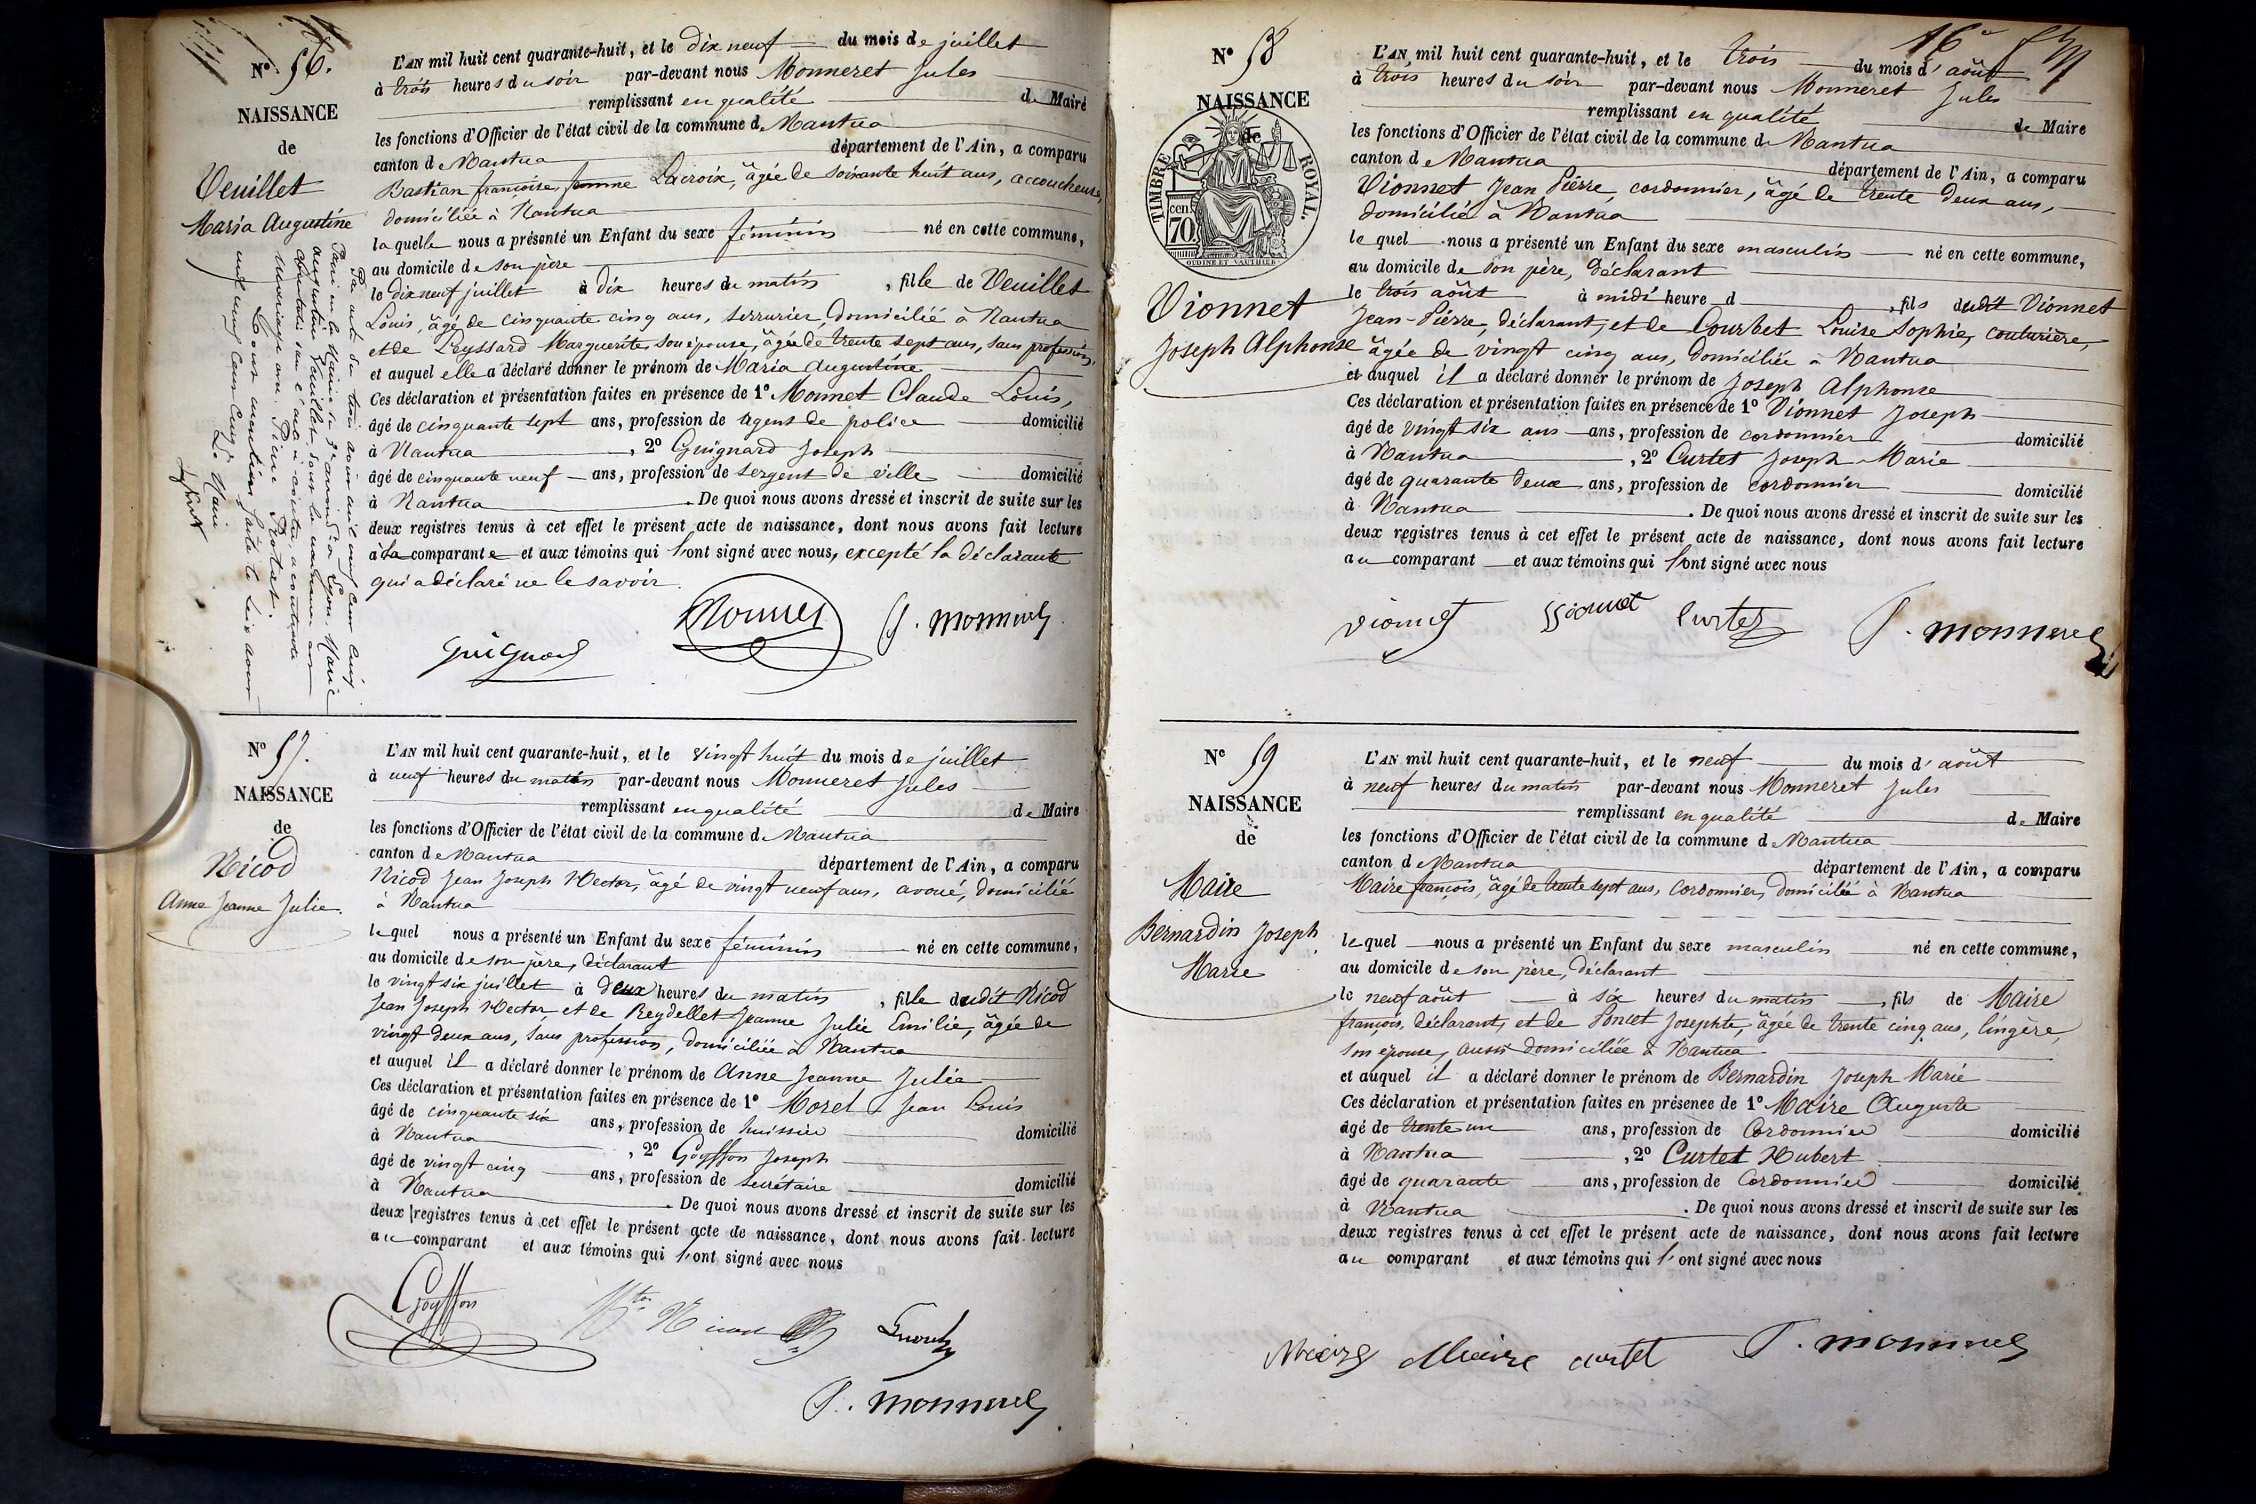 N° 56.
NAISSANCE
de
Veuillet
Maria Augustine
L'AN mil huit cent quarante-huit, et le dix neuf du mois de juillet
à trois heures du soir par-devant nous Monneret Jules
remplissant en qualité de Maire
les fonctions d'Officier de l'état civil de la commune de Nantua
canton de Nantua département de l'Ain, a comparu
Bastian françoise, femme Lacroix, âgée de soixante huit ans, accoucheuse,
domiciliée à Nantua
la quelle nous a présenté un Enfant du sexe féminin né en cette commune,
au domicile de son père
le dix neuf juillet à dix heures du matin, fille de Veuillet
Louis, âgé de cinquante cinq ans, serrurier, domicilié à Nantua
et de Leyssard Marguerite, son épouse, âgée de trente sept ans, sans profession,
et auquel elle a déclaré donner le prénom de Maria Augustine
Ces déclaration et présentation faites en présence de 1° Monnet Claude Louis,
âgé de cinquante sept ans, profession de agent de police domicilié
à Nantua, 2° Guignard Joseph
âgé de cinquante neuf ans, profession de sergent de ville domicilié
à Nantua. De quoi nous avons dressé et inscrit de suite sur les
deux registres tenus à cet effet le présent acte de naissance, dont nous avons fait lecture
à la comparante et aux témoins qui l'ont signé avec nous, excepté la déclarante
qui a déclaré ne le savoir.
Guignard Monnet J. Monneret
Par acte du trois avril mil neuf cent cinq
Maire
N° 57.
NAISSANCE
de
Nicod
Anne Jeanne Julie.
L'AN mil huit cent quarante-huit, et le vingt huit du mois de juillet
à neuf heures du matin par-devant nous Monneret Jules
remplissant en qualité de Maire
les fonctions d'Officier de l'état civil de la commune de Nantua
canton de Nantua département de l'Ain, a comparu
Nicod Jean Joseph Hector, âgé de vingt neuf ans, avoué, domicilié
à Nantua
le quel nous a présenté un Enfant du sexe féminin né en cette commune,
au domicile de son père, déclarant
le vingt six juillet à deux heures du matin, fille dudit Nicod
Jean Joseph Hector et de Reydellet Jeanne Julie Emilie, âgée de
vingt deux ans, sans profession, domiciliée à Nantua
et auquel il a déclaré donner le prénom de Anne Jeanne Julie
Ces déclaration et présentation faites en présence de 1° Morel Jean Louis
âgé de cinquante six ans, profession de huissier domicilié
à Nantua, 2° Goyffon Joseph
âgé de vingt cinq ans, profession de secrétaire domicilié
à Nantua. De quoi nous avons dressé et inscrit de suite sur les
deux registres tenus à cet effet le présent acte de naissance, dont nous avons fait lecture
au comparant et aux témoins qui l'ont signé avec nous
Goyffon Nicod
J. Monneret
16e
N° 58
NAISSANCE
de
TIMBRE ROYAL.
70 cen.
OUDINE ET VAUTHIER
Vionnet
Joseph Alphonse
L'AN mil huit cent quarante-huit, et le trois du mois d'août
à trois heures du soir par-devant nous Monneret Jules
remplissant en qualité de Maire
les fonctions d'Officier de l'état civil de la commune de Nantua
canton de Nantua département de l'Ain, a comparu
Vionnet Jean Pierre, cordonnier, âgé de trente deux ans,
domicilié à Nantua
le quel nous a présenté un Enfant du sexe masculin né en cette commune,
au domicile de son père, déclarant
le trois août à midi heure d, fils dudit Vionnet
Jean-Pierre, déclarant, et de Courbet Louise Sophie, couturière,
âgée de vingt cinq ans, domiciliée à Nantua
et auquel il a déclaré donner le prénom de Joseph Alphonse
Ces déclaration et présentation faites en présence de 1° Vionnet Joseph
âgé de vingt six ans ans, profession de cordonnier domicilié
à Nantua, 2° Curtet Joseph-Marie
âgé de quarante deux ans, profession de cordonnier domicilié
à Nantua. De quoi nous avons dressé et inscrit de suite sur les
deux registres tenus à cet effet le présent acte de naissance, dont nous avons fait lecture
au comparant et aux témoins qui l'ont signé avec nous
Vionnet Vionnet Curtet J. Monneret
N° 59
NAISSANCE
de
Maire
Bernardin Joseph
Marie
L'AN mil huit cent quarante-huit, et le neuf du mois d'août
à neuf heures du matin par-devant nous Monneret Jules
remplissant en qualité de Maire
les fonctions d'Officier de l'état civil de la commune de Nantua
canton de Nantua département de l'Ain, a comparu
Maire françois, âgé de trente sept ans, cordonnier, domicilié à Nantua
le quel nous a présenté un Enfant du sexe masculin né en cette commune,
au domicile de son père, déclarant
le neuf août à six heures du matin, fils de Maire
françois, déclarant, et de Poncet Josephte, âgée de trente cinq ans, lingère,
son épouse, aussi domiciliée à Nantua
et auquel il a déclaré donner le prénom de Bernardin Joseph Marie
Ces déclaration et présentation faites en présence de 1° Maire Auguste
âgé de trente un ans, profession de Cordonnier domicilié
à Nantua, 2° Curtet Hubert
âgé de quarante ans, profession de Cordonnier domicilié
à Nantua. De quoi nous avons dressé et inscrit de suite sur les
deux registres tenus à cet effet le présent acte de naissance, dont nous avons fait lecture
au comparant et aux témoins qui l'ont signé avec nous
Maire Maire curtet J. Monneret